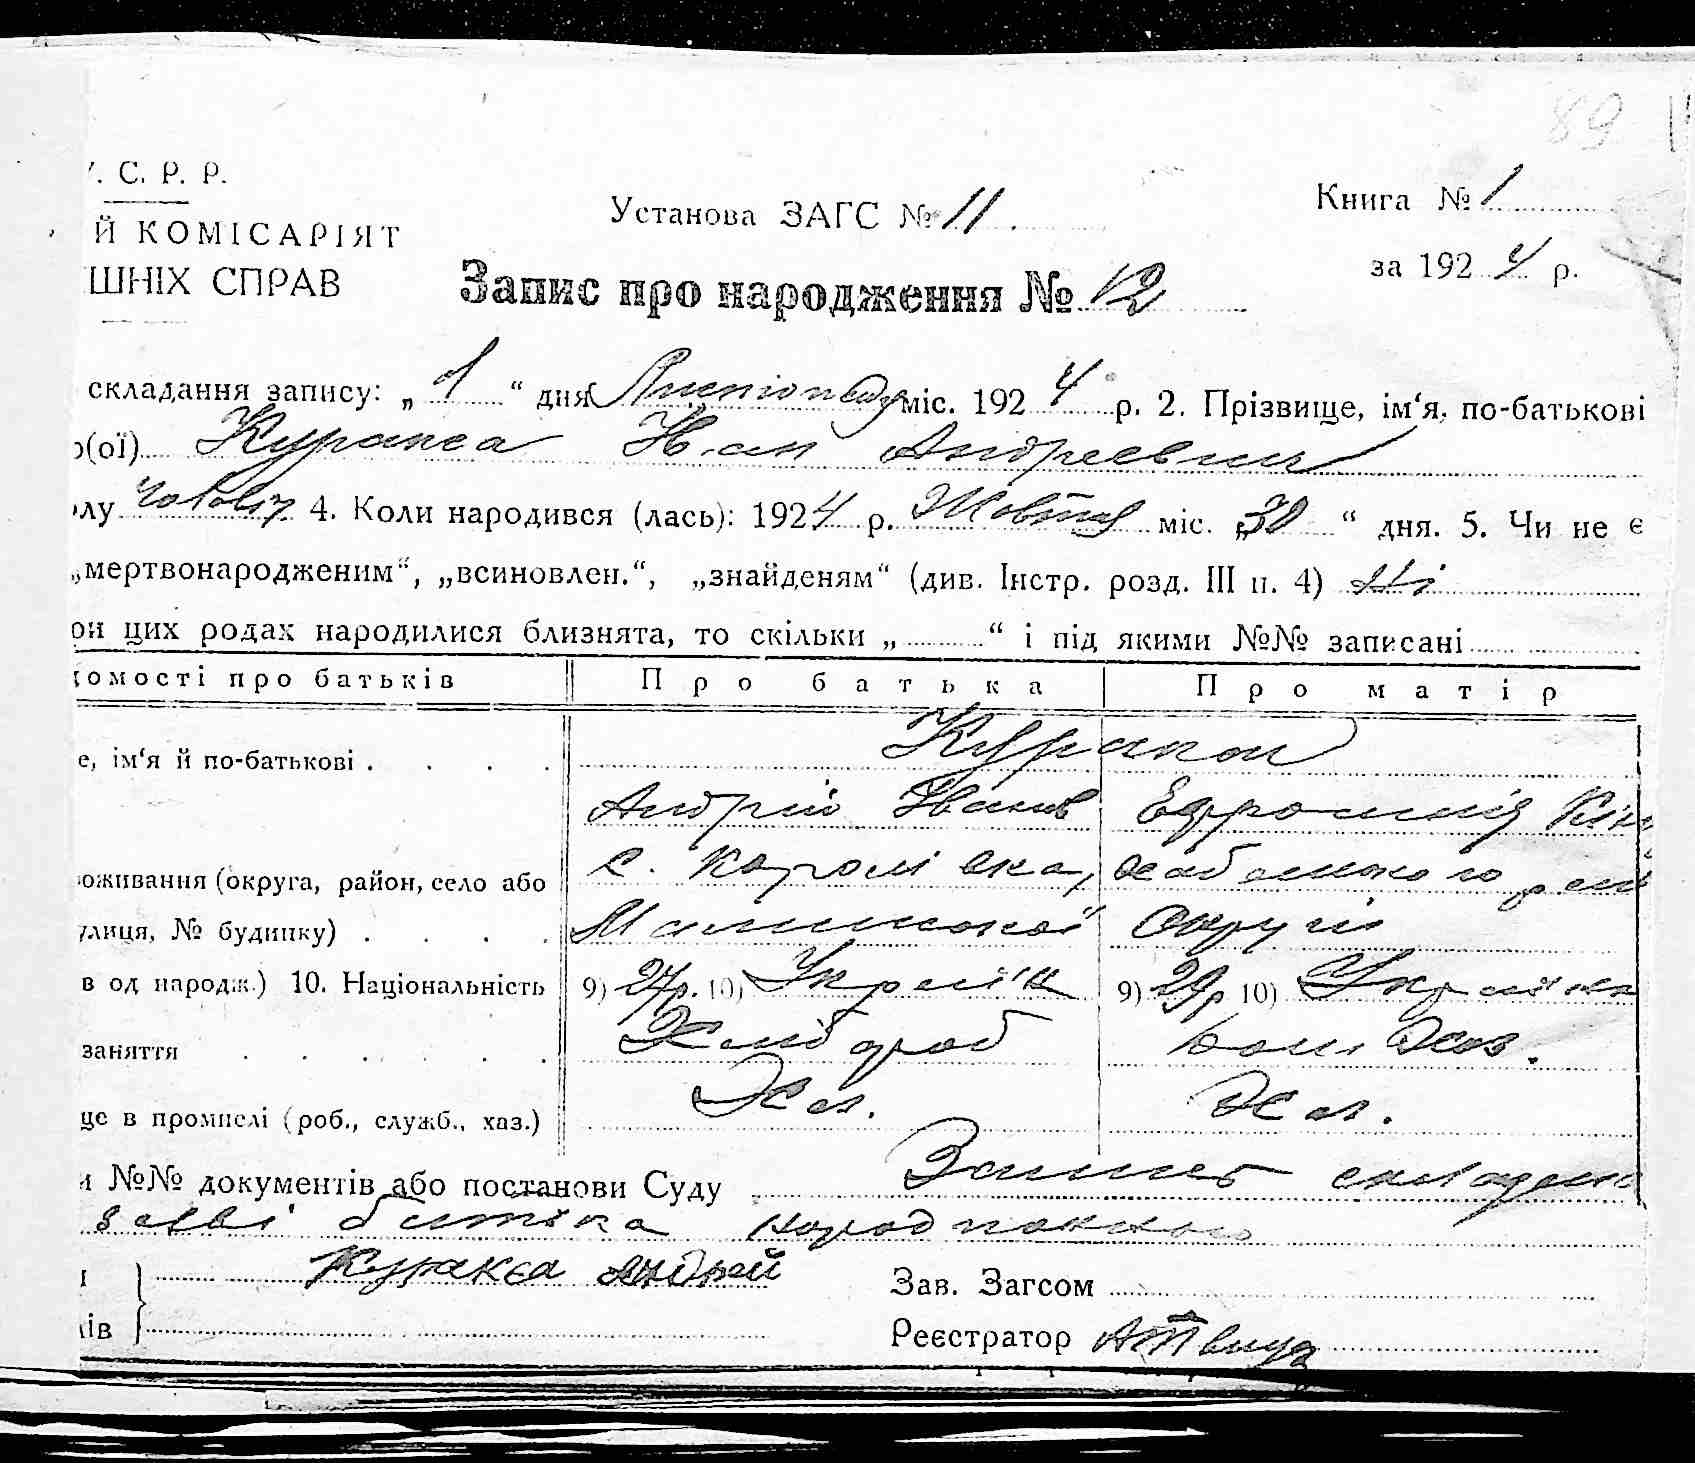 89
. С. Р. Р.
Й КОМІСАРІЯТ
ШНІХ СПРАВ
Установа ЗАГС № 11.
Книга № 1
за 1924 р.
Запис про народження № 12
складання запису: „ 1 “ дня Листопаду міс. 1924 р. 2. Прізвище, ім‘я, по-батькові
о(ої) Куракса Іван Андреевич
лу чоловіч 4. Коли народився (лась): 1924 р. Жовтня міс. „30 “ дня. 5. Чи не є
„мертвонародженим“, „всиновлен.“, „знайденям“ (див. Інстр. розд. III п. 4) Ні
он цих родах народилися близнята, то скільки „ “ і під якими №№ записані
омості про батьків Про батька Про матір
е, ім‘я й по-батькові
Андрій Іванов Ефросинія
оживання (округа, район, село або с. Королівка,
улиця, № будинку) Округи
в од народж.) 10. Національність 9) 27р. 10) Україн 9) 29р 10) Українка
заняття Хлібороб Дом. Хоз.
це в промислі (роб., служб., хаз.) Хаз. Хаз.
и №№ документів або постанови Суду Запис складено
заяві батька
Куракса Андрей
Зав. Загсом
ів
Реєстратор